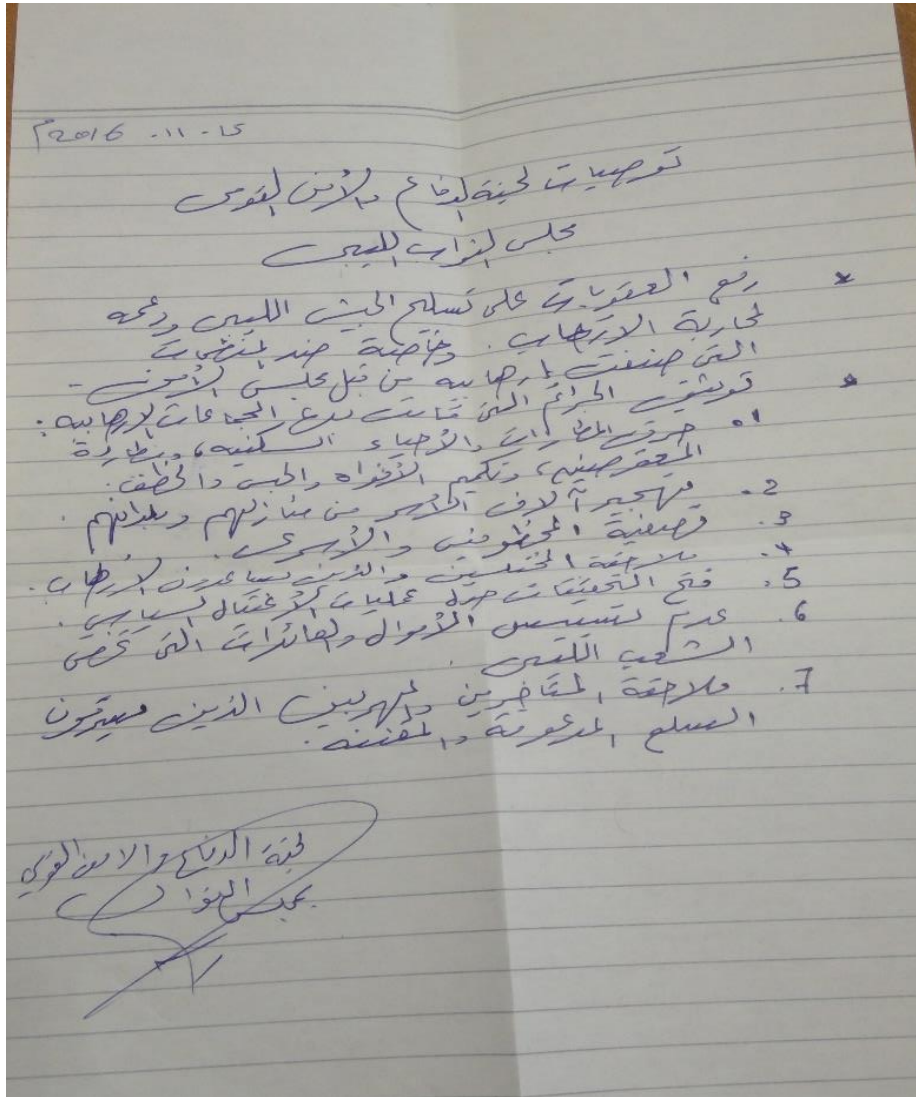 2016 - 11 - 15م
توصيات لجنة الدفاع والأمن القومى
مجلس النواب الليبى
* رفع العقوبات على تسليح الجيش الليبى ودعمه
لمحاربة الارهاب . وخاصة ضد المنظمات
التى صنفت إرهابيه من قبل مجلس الأمن -
* توثيق الجرائم التى قامت بها الجماعات الإرهابيه :
1. حرق المطارات والأحياء السكنيه، ومطاردة
المعترضين، وتكميم الأفواه والحبس والخطف .
2. تهجير آلاف الأسر من منازلهم وبلدانهم .
3. تصفية المخطوفين والأسرى .
4. ملاحقة المختلسين والذين يساعدون الإرهاب .
5. فتح التحقيقات حول عمليات الأغتيال السياسى .
6. عدم تسييس الأموال والعائدات التى تخص
الشعب الليبى .
7. ملاحقة المتاجرين والمهربين الذين يسرقون
السلع المدعومة والمقننه .
لجنة الدفاع والامن القومي
بمجلس النواب